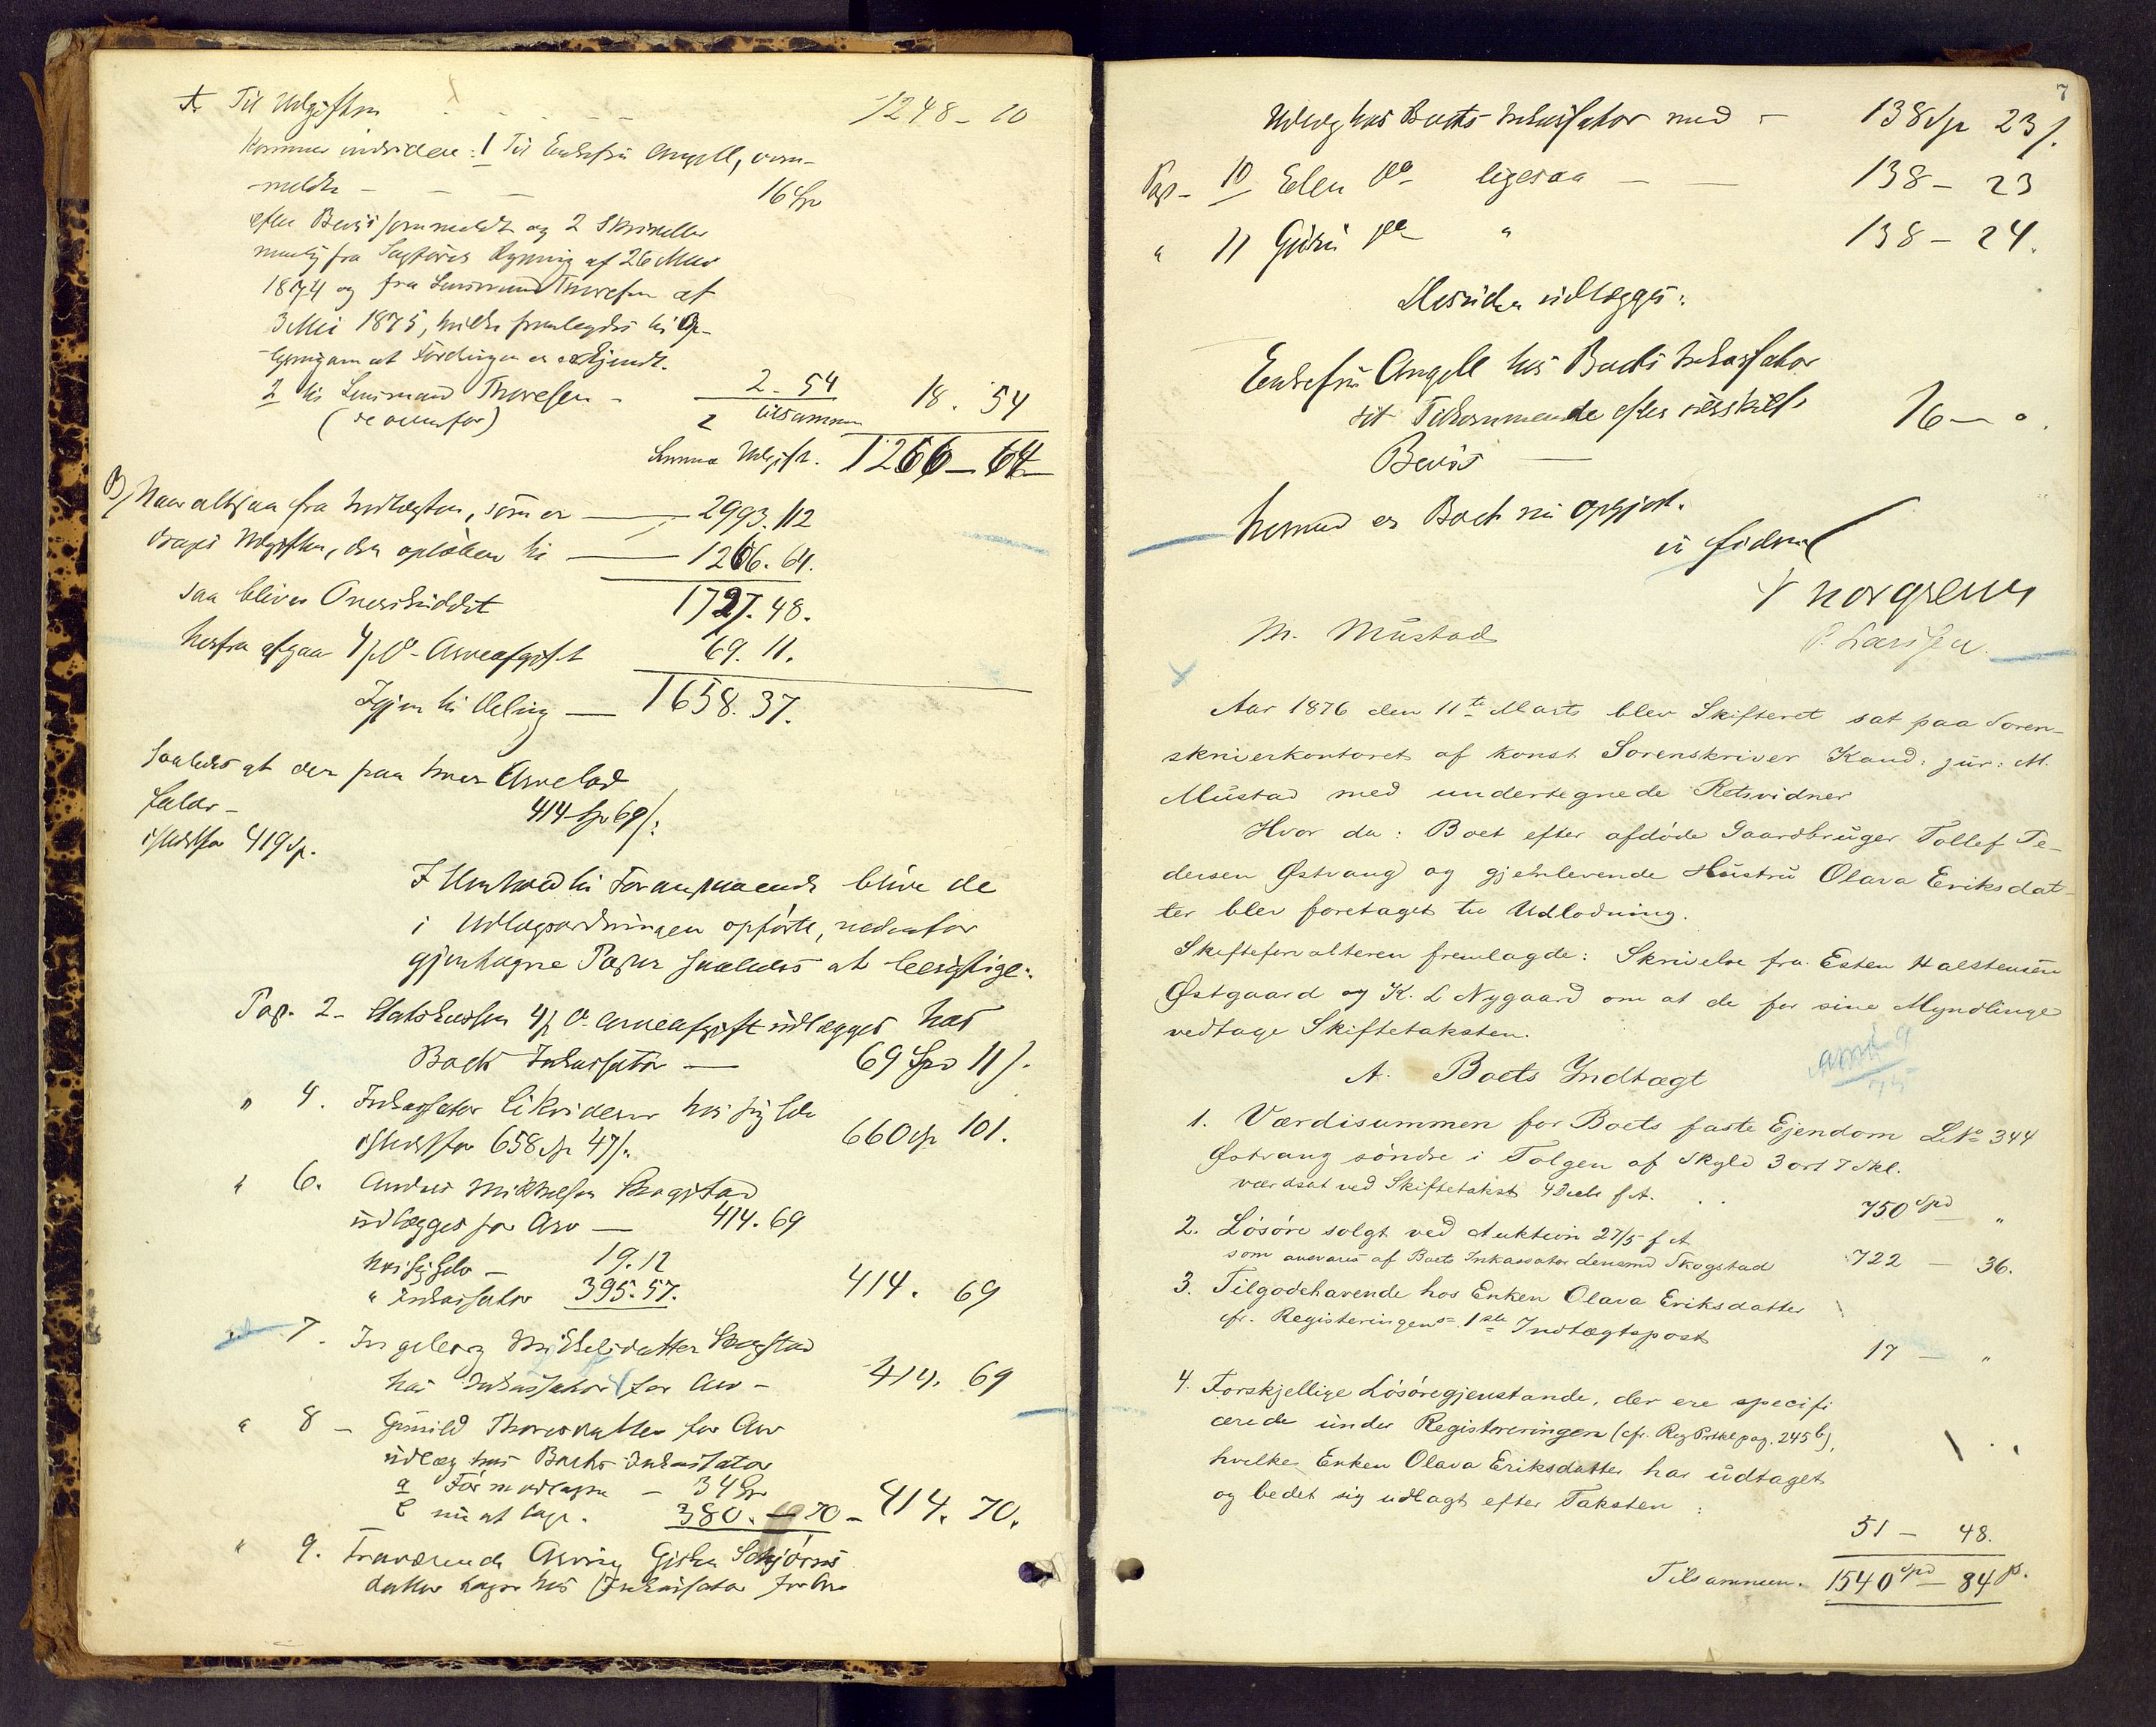 Til Udgiften 1248-10
Kommer endvidere: 1 Til Enkefru Angell, oven-
meldte 16 Sp
efter Bevis formeldt og 2 Skrivelser
nemlig fra Sagfører Rynning af 26 Mar
1874 og fra Lensmand Thoresen af
3 Mai 1875, hvilke fremlagdes til Op-
lysning om at Fordringen er erkjendt.
2 til Lensmand Thoresen - 2-54 18. 54
(se ovenfor) tilsammen
Summa Udgift. 1266-64
B) Naar altsaa fra Indtægten, som er 2993.112
drages Udgiften, der opløber til 1266.64.
saa bliver Overskuddet 1727.48.
herfra afgaar 4 p.C. Arveafgift 69.11.
Igjen til Deling 1658.37.
Saaledes at der paa hver Arvelod
falder 414 Sp 69 /:
istedetfor 419 Sp.
I Henhold til Foranstaaende blive de
i Udlægsordningen opførte, nedenfor
gjentagne Poster saaledes at berigtige:
Post. 2 - Statskassen 4 p C. Arveafgift udlægges hos
Boets Inkassator 69 Spd 11 /.
" 4. Inkassator likviderer hos sig selv
istedetfor 658 Sp 47 /. 660 Sp 101.
" 6. Anders Mikkelsen Skogstad
udlægges for Arv 414.69
hos sig selv - 19.12
" Inkassator 395.57. 414. 69
" 7. Ingeborg Mikkelsdatter Skogstad
hos Inkassator for Arv - 414. 69
" 8 - Gunild Thoresdatter for Arv
udlæg hos Boets Inkassator
a Før modtagne - 34 Sp
b nu at tage. 380. 70 - 414. 70.
" 9. Fraværende Arving Gisken Schjørns
datter tager hos Inkassator for Arv
7
Udlæg hos Boets Inkassator med - 138 Sp 23 /.
Post - 10 Elen ligesaa 138 - 23
" 11 Guru " 138 - 24.
Desuden udlægges:
Enkefru Angell hos Boets Inkassator
sit Tilkommende efter
Bevis 16 - "
hermed er Boet nu opgjort.
M. Mustad
P. Larssen
Aar 1876 den 11te Marts blev Skifteret sat paa Soren-
skriverkontoret af konst Sorenskriver Kand: jur: M.
Mustad med undertegnede Retsvidner
Hvor da: Boet efter afdøde Gaardbruger Tollef Pe-
dersen Østvang og gjenlevende Hustru Olava Eriksdat-
ter blev foretaget til Udlodning.
Skifteforvalteren fremlagde: Skrivelse fra Esten Halstensen
Østgaard og K. L Nygaard om at de for sine Myndlinge
vedtage Skiftetaksten.
A. Boets Indtægt
1. Værdisummen for Boets faste Ejendom L.No 344
Østvang søndre i Tolgen af Skyld 3 ort 7 Skl.
værdsat ved Skiftetakst 4 Decbr f.A. . . 750 Spd "
2. Løsøre solgt ved Auktion 27/5 f A
som ansvares af Boets Inkassator Lensmd Skogstad 722 - 36.
3. Tilgodehavende hos Enken Olava Eriksdatter
cfr. Registeringens 1ste Indtægtspost 17 - "
4. Forskjellige Løsøregjenstande, der ere specifi
cerede under Registreringen (cfr. Reg Prtkl pag. 245 b),
hvilke Enken Olava Eriksdatter har udtaget
og bedet sig udlagt efter Taksten : 51 - 48.
Tilsammen. 1540 Spd - 84 s.